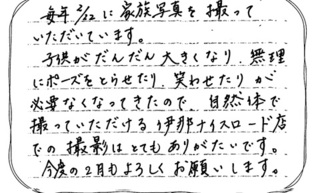 毎年2/22に家族写真を撮って
いただいています。
子供がだんだん大きくなり、無理
にポーズをとらせたり、笑わせたりが
必要なくなってきたので、自然体で
撮っていただける伊那ナイスロード店
での撮影はとてもありがたいです。
今度の2月もよろしくお願いします。